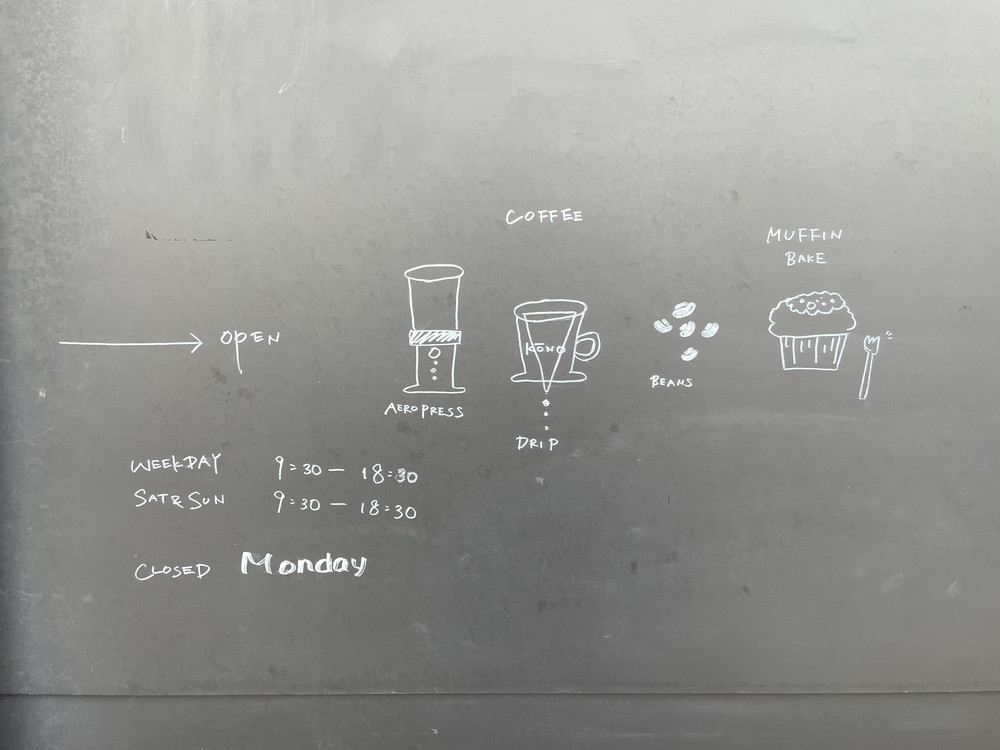 COFFEE
MUFFIN
BAKE
OPEN
KŌNO
BEANS
AEROPRESS
DRIP
WEEKDAY 9:30 — 18:30
SAT & SUN 9:30 — 18:30
CLOSED Monday